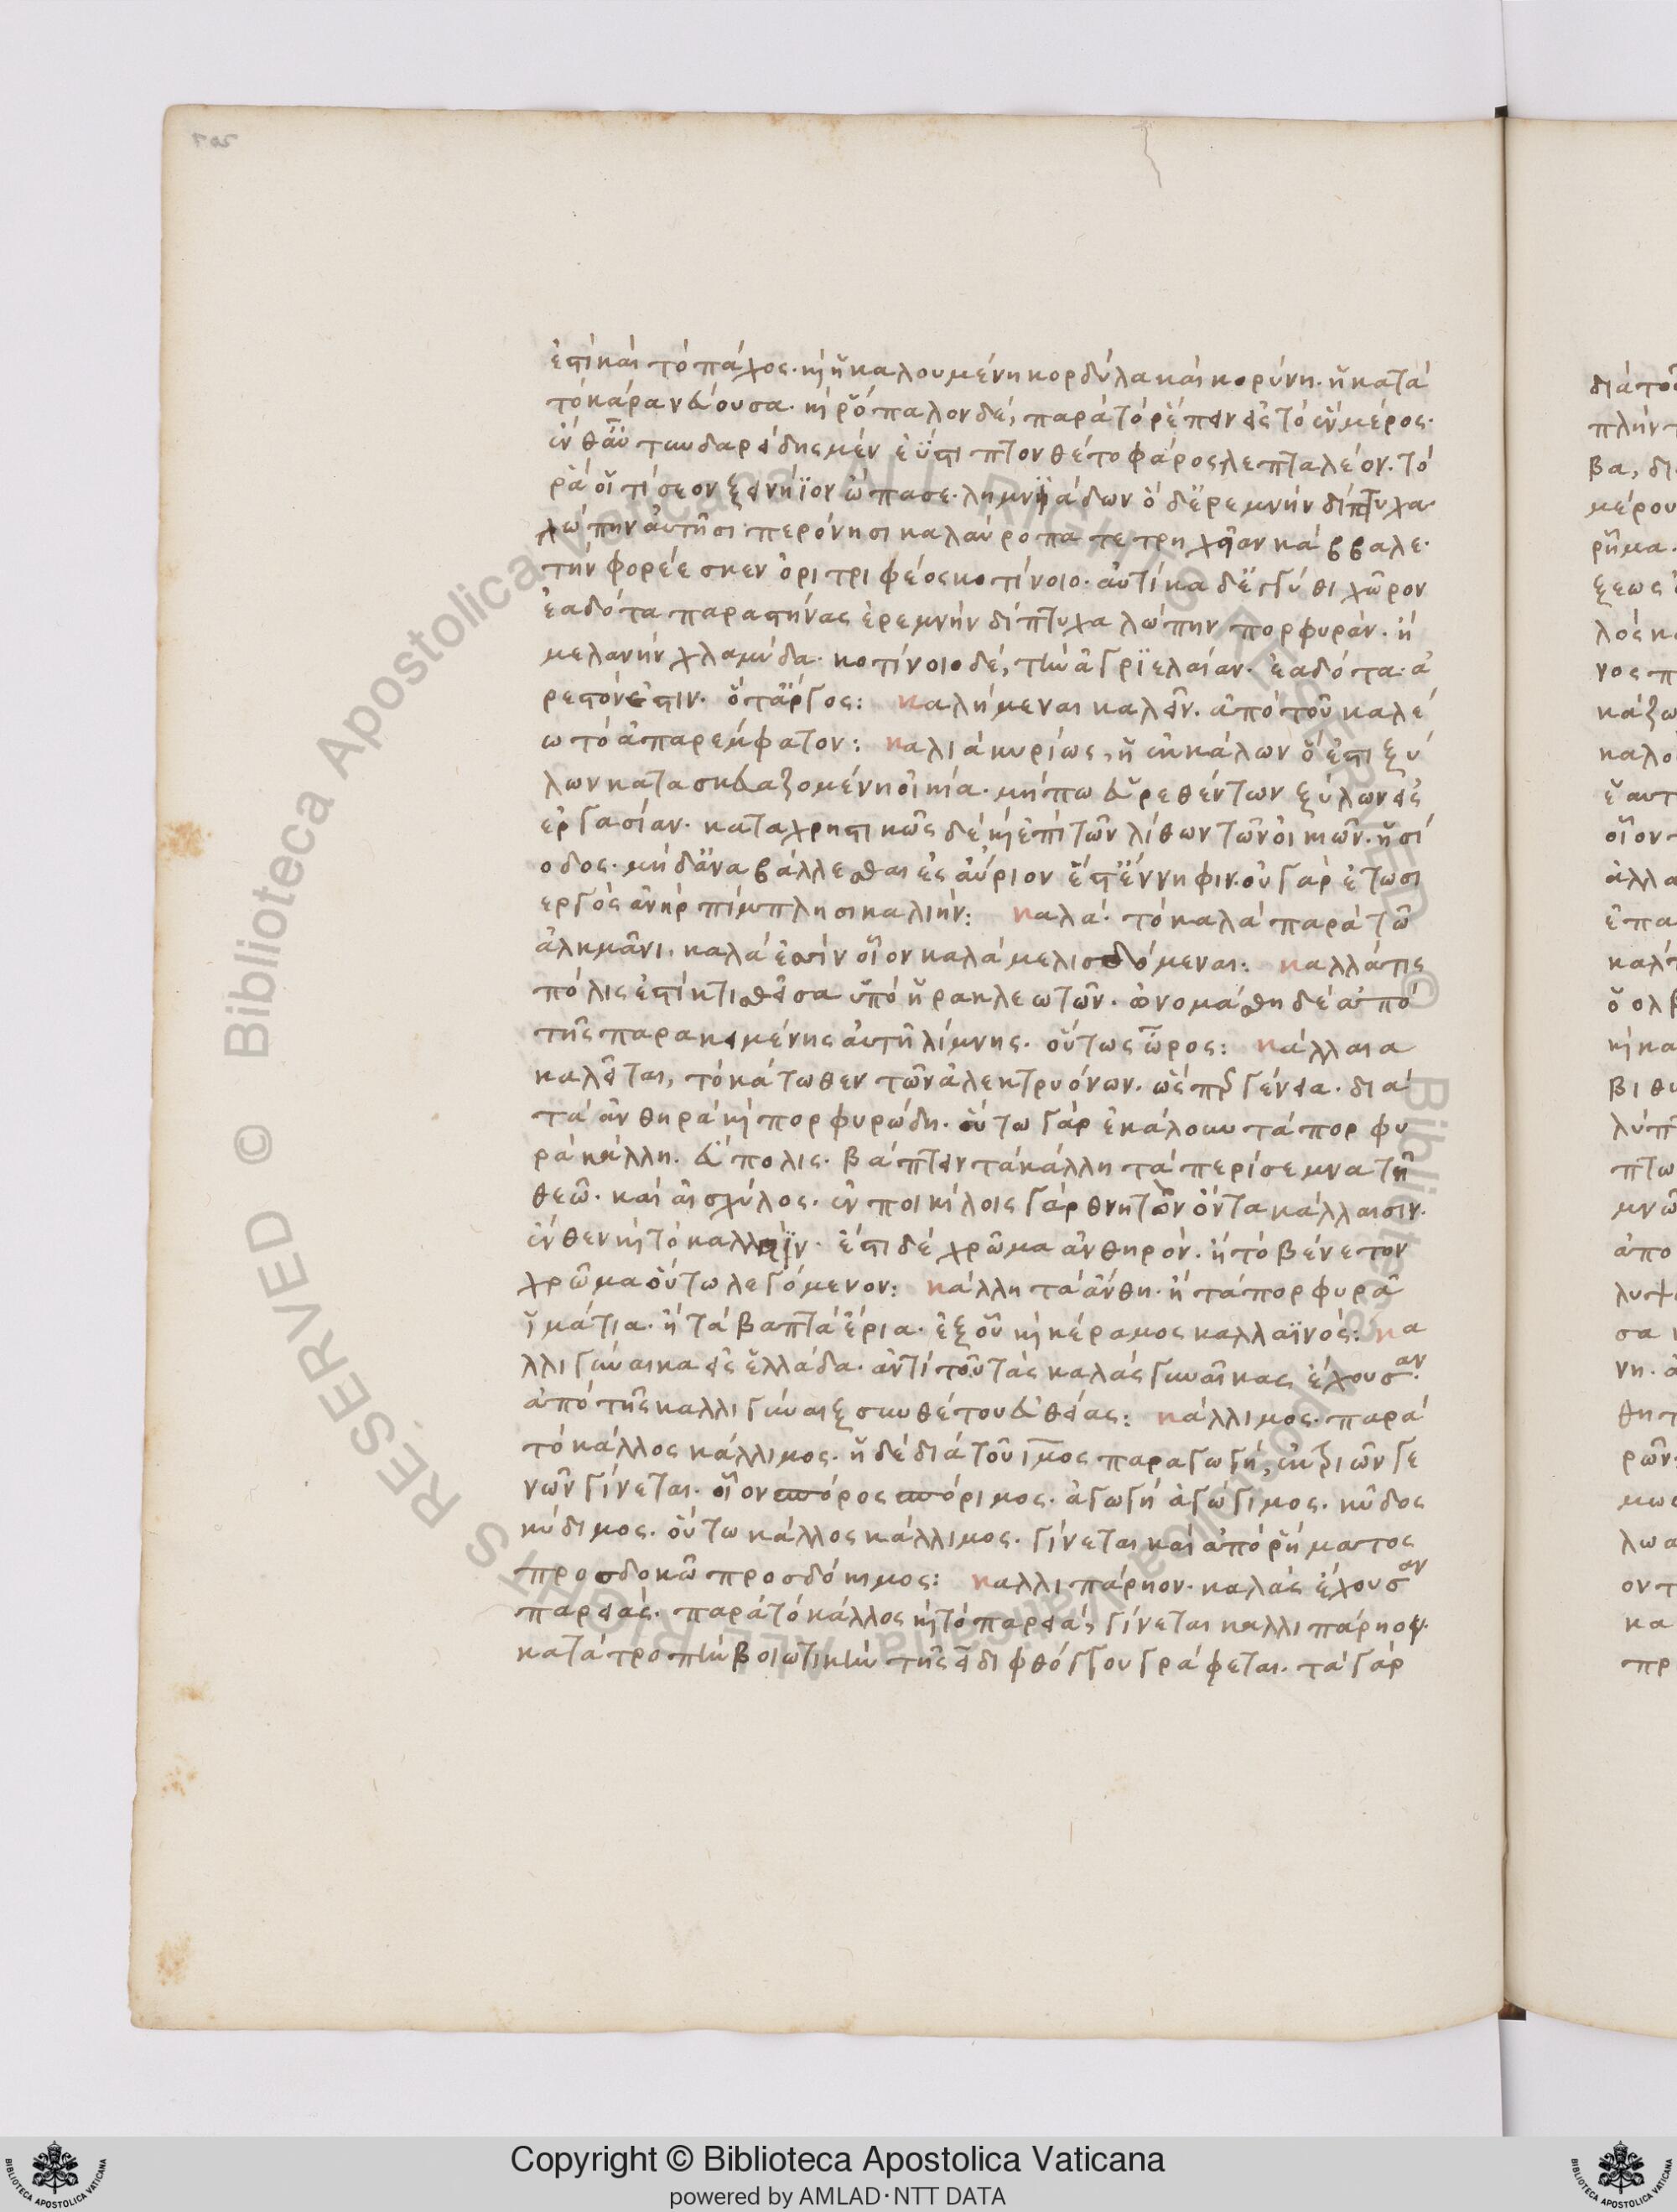 ἐστὶ καὶ τὸ πάχος· καὶ ἡ καλουμένη κορδύλα καὶ κορύνη· ἡ κατὰ
τὸ κάρα νεύουσα· καὶ ῥόπαλον δὲ, παρὰ τὸ ῥέπειν εἰς τὸ ἓν μέρος·
ἔνθ' αὖ τυνδαρείδης μὲν ἐΰστιπτον θέτο φάρος λεπταλέον· τό
ῥά οἵ τις ἑὸν ξεινήϊον ὤπασε· λημνιάδων ὁ δ' ἐρεμνὴν δίπτυχα
λώπην αὐτῇσι περόνῃσι καλαύροπά τε τρηχεῖαν κάββαλε·
τὴν φορέεσκεν ὀριτρεφέος κοτίνοιο· αὐτίκα δ' ἐγγύθι χῶρον
ἑαδότα παραστήνας ἐρεμνὴν δίπτυχα λώπην πορφυρὰν· ἢ
μελανὴν χλαμύδα· κοτίνοιο δὲ, τὴν ἀγριελαίαν· ἑαδότα· ἀ
ρεστόν ἐστιν· ὅτ' ἄργος: καλήμεναι καλεῖν· ἀπὸ τοῦ καλέ
ω τὸ ἀπαρέμφατον: καλιὰ κυρίως, ἡ ἐκ κάλων ὅ ἐστι ξύ
λων κατασκευαζομένη οἰκία· μήπω εὑρεθέντων ξύλων εἰς
ἐργασίαν· καταχρηστικῶς δὲ καὶ ἐπὶ τῶν λίθων τῶν οἰκιῶν· ἡσί
οδος· μὴδ' ἀναβάλλεσθαι ἐς αὔριον ἔς τ' ἔννηφιν· οὐ γὰρ ἐτωσι
εργὸς ἀνὴρ πίμπλησι καλιήν: καλά· τὸ καλὰ παρὰ τῶ
ἀλκμᾶνι· καλά ἐστιν οἷον καλὰ μελισδόμεναι: καλλάτις
πόλις ἐστὶ κτισθεῖσα ὑπὸ ἡρακλεωτῶν· ὠνομάσθη δὲ ἀπὸ
τῆς παρακειμένης αὐτῇ λίμνης· οὕτως ὦρος: κάλλαια
καλεῖται, τὸ κάτωθεν τῶν ἀλεκτρυόνων· ὡσπερ γένεια· διὰ
τὰ ἀνθηρὰ καὶ πορφυρώδη· οὕτω γὰρ ἐκάλουν τὰ πορφυ
ρὰ κάλλη· εὔπολις· βάπτειν τὰ κάλλη τὰ περίσεμνα τῇ
θεῶ· καὶ αἰσχύλος· ἐν ποικίλοις γὰρ θνητὸν ὄντα κάλλαισιν·
ἔνθεν καὶ τὸ καλλάϊν· ἔστι δὲ χρῶμα ἀνθηρὸν· ἢ τὸ βένετον
χρῶμα οὕτω λεγόμενον: κάλλη τὰ ἄνθη· ἢ τὰ πορφυρᾶ
ἱμάτια· ἢ τὰ βαπτὰ ἔρια· ἐξ οὗ καὶ κέραμος καλλαϊνός: κα
λλιγύναικα εἰς ἑλλάδα· ἀντὶ τοῦ τὰς καλὰς γυναῖκας ἔχουσαν·
ἀπὸ τῆς καλλιγύναιξ συνθέτου εὐθείας: κάλλιμος· παρὰ
τὸ κάλλος κάλλιμος· ἡ δὲ διὰ τοῦ ιμος παραγωγὴ, ἐκ τριῶν γε
νῶν γίνεται· οἷον σπόρος σπόριμος· ἀγωγὴ ἀγώγιμος· κῦδος
κύδιμος· οὕτω κάλλος κάλλιμος· γίνεται καὶ ἀπὸ ῥήματος
προσδοκῶ προσδόκιμος: καλλιπάρηον· καλὰς ἔχουσαν
παρειάς· παρὰ τὸ κάλλος καὶ τὸ παρειάς γίνεται καλλιπάρηον·
κατὰ τροπὴν βοιωτικὴν τῆς ει διφθόγγου γράφεται· τὰ γὰρ